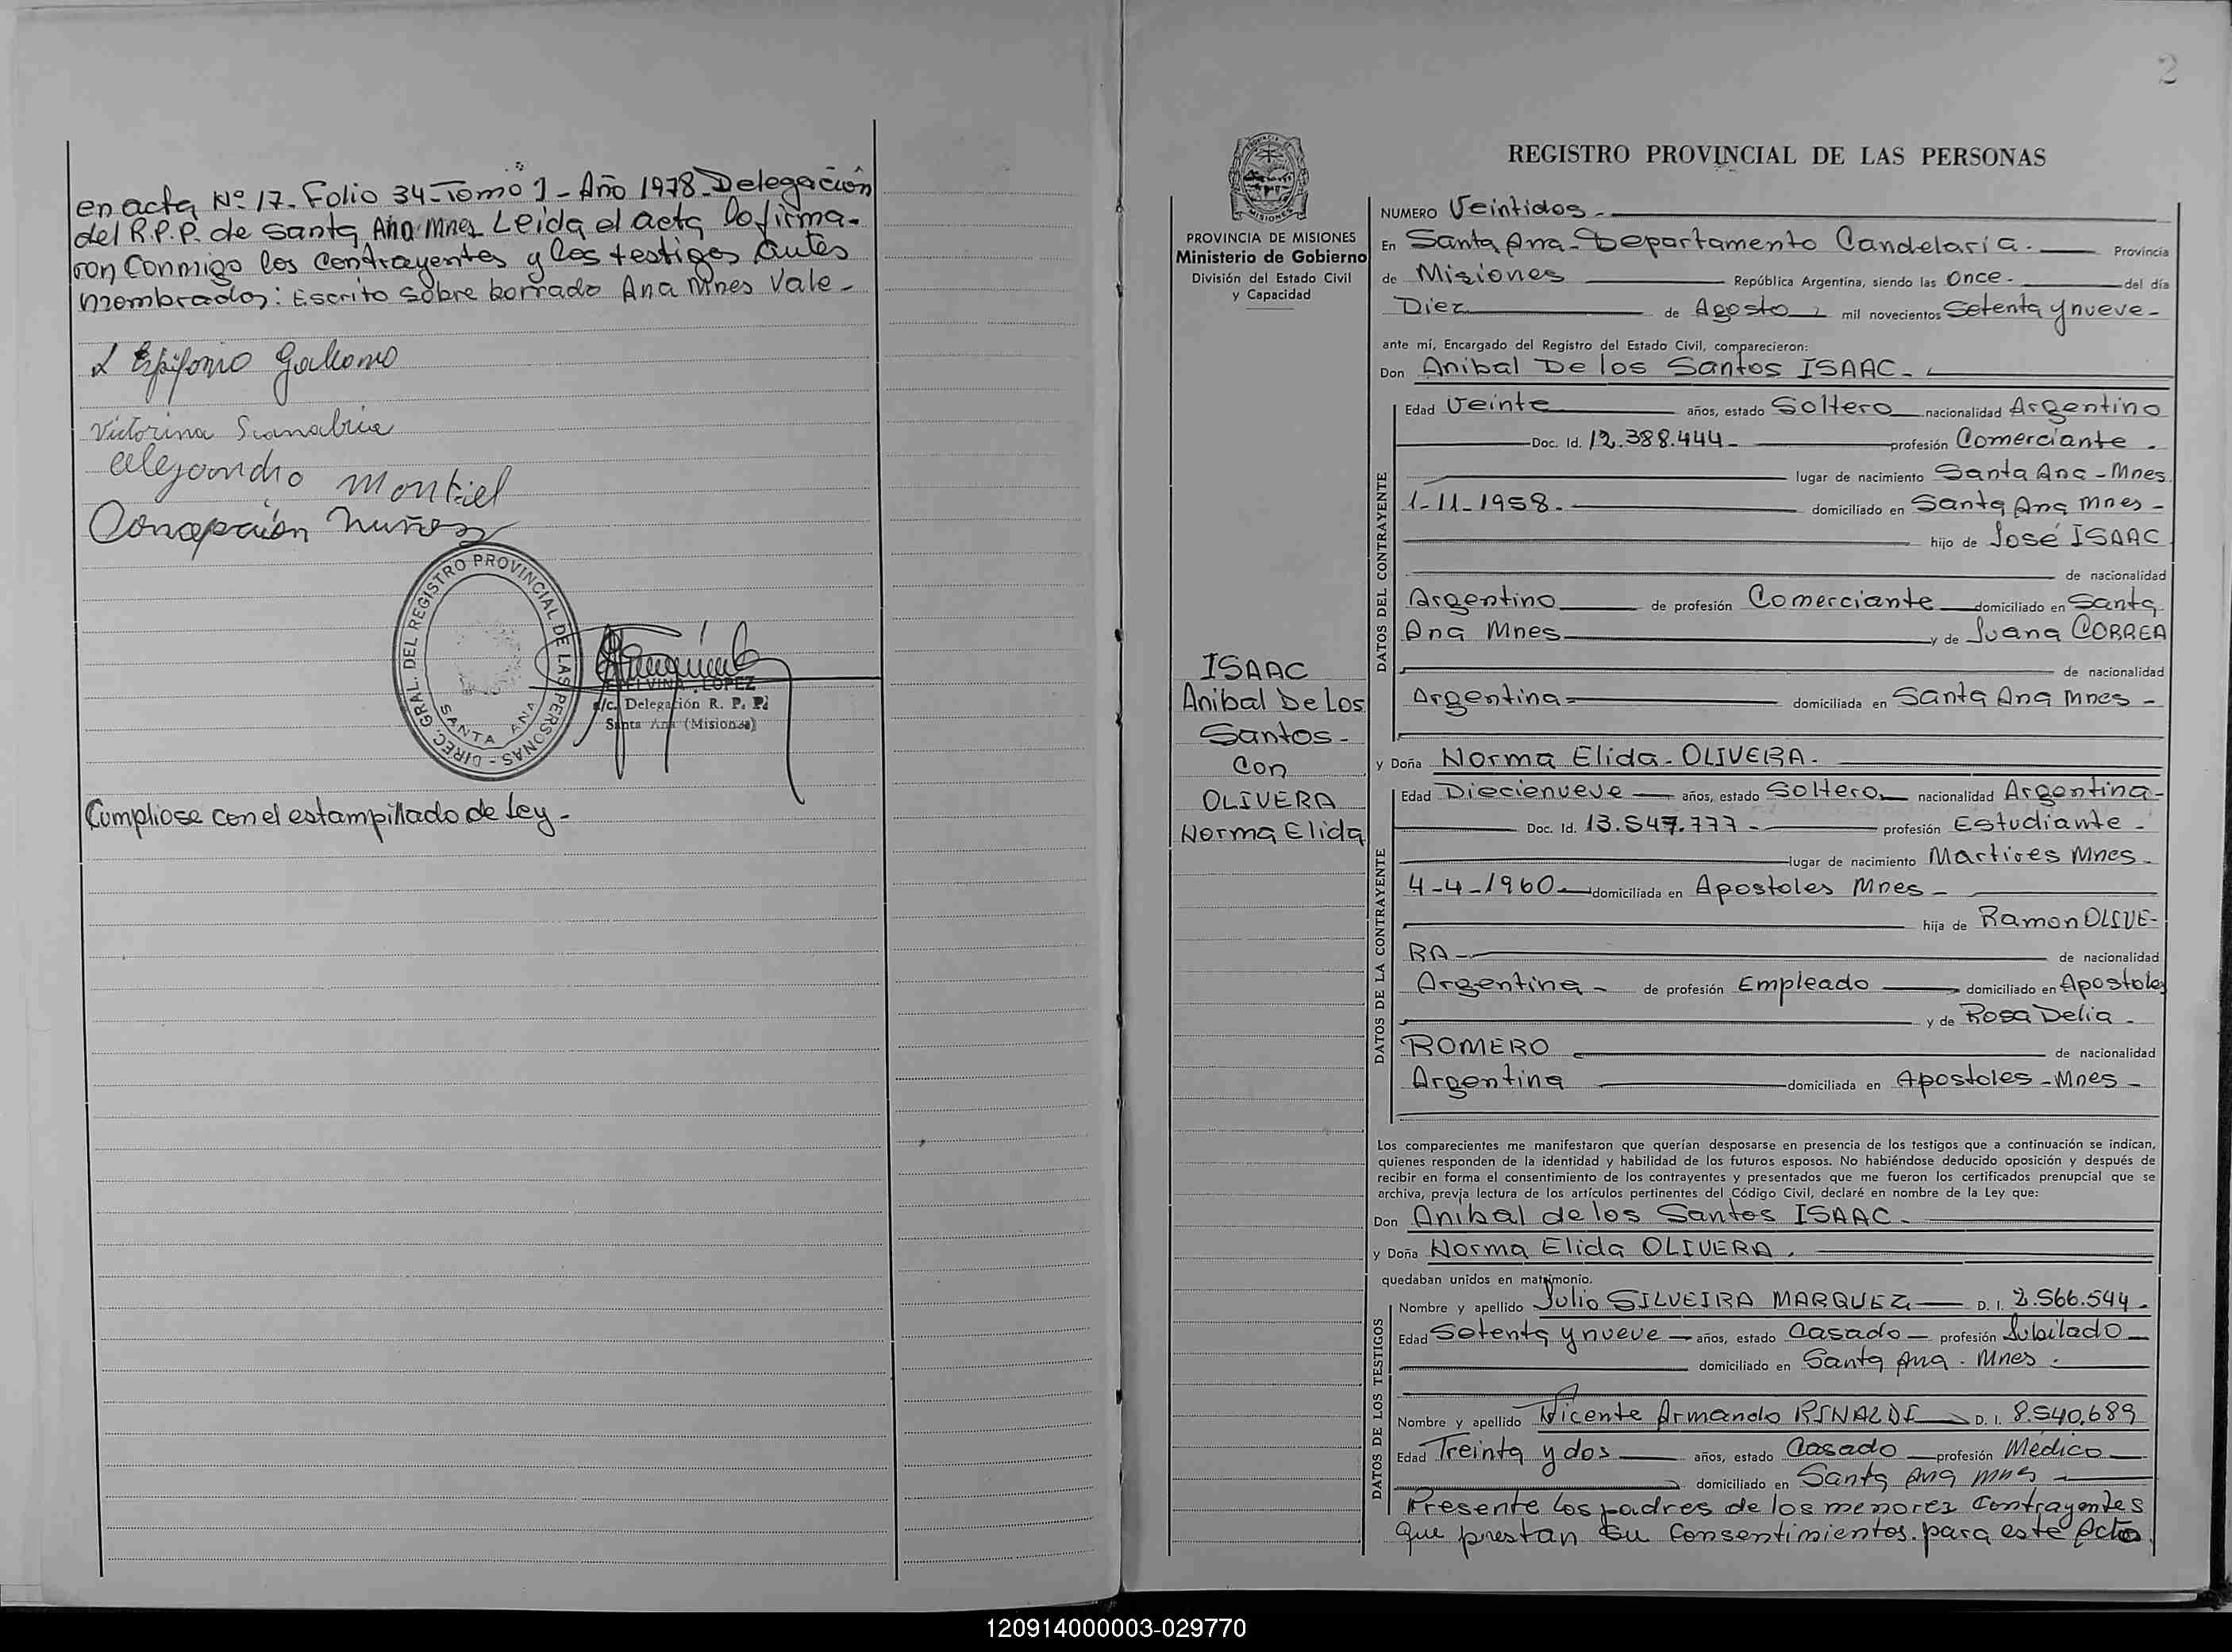 en acta Nº 17. Folio 34-Tomo 1 - Año 1978-Delegación
del R.P.P. de Santa Ana Mnes Leida el acta la firma-
ron Conmigo los Contrayentes y los testigos Antes
nombrados: Escrito sobre borrado Ana Mnes Vale-
Epifanio
Victorina Sanabria
Alejandro Montiel
Concepción Nuñez
DIREC. GRAL. DEL REGISTRO PROVINCIAL DE LAS PERSONAS - SANTA ANA
LOPEZ
a/c. Delegación R. P. P.
Santa Ana (Misiones)
Cumpliose con el estampillado de Ley-
2
MISIONES
PROVINCIA DE MISIONES
Ministerio de Gobierno
División del Estado Civil
y Capacidad
ISAAC
Anibal De Los
Santos-
Con
OLIVERA
Norma Elida
REGISTRO PROVINCIAL DE LAS PERSONAS
NUMERO Veintidos-
En Santa Ana-Departamento Candelaria. Provincia
de Misiones República Argentina, siendo las Once. del día
Diez de Agosto mil novecientos Setenta y nueve-
ante mí, Encargado del Registro del Estado Civil, comparecieron:
Don Anibal De los Santos ISAAC-
DATOS DEL CONTRAYENTE
Edad Veinte años, estado Soltero nacionalidad Argentino
Doc. Id. 12.388.444- profesión Comerciante.
lugar de nacimiento Santa Ana-Mnes
1-11-1958. domiciliado en Santa Ana Mnes-
hijo de José ISAAC
de nacionalidad
Argentino de profesión Comerciante domiciliado en Santa
Ana Mnes y de Juana CORREA
de nacionalidad
Argentina domiciliada en Santa Ana Mnes-
y Doña Norma Elida-OLIVERA.
DATOS DE LA CONTRAYENTE
Edad Diecienueve años, estado Soltero nacionalidad Argentina-
Doc. Id. 13.547.777- profesión Estudiante-
lugar de nacimiento Martires Mnes-
4-4-1960 domiciliada en Apostoles Mnes-
hija de Ramon OLIVE-
RA- de nacionalidad
Argentina- de profesión Empleado domiciliado en Apostoles
y de Rosa Delia-
ROMERO de nacionalidad
Argentina domiciliada en Apostoles-Mnes-
Los comparecientes me manifestaron que querían desposarse en presencia de los testigos que a continuación se indican,
quienes responden de la identidad y habilidad de los futuros esposos. No habiéndose deducido oposición y después de
recibir en forma el consentimiento de los contrayentes y presentados que me fueron los certificados prenupcial que se
archiva, previa lectura de los artículos pertinentes del Código Civil, declaré en nombre de la Ley que:
Don Anibal de los Santos ISAAC-
y Doña Norma Elida OLIVERA.
quedaban unidos en matrimonio.
DATOS DE LOS TESTIGOS
Nombre y apellido Julio SILVEIRA MARQUEZ D. I. 2.566.544-
Edad Setenta y nueve años, estado Casado profesión Jubilado
domiciliado en Santa Ana. Mnes.
Nombre y apellido Vicente Armando RINALDI D. I. 8.540.689
Edad Treinta y dos años, estado Casado profesión Médico
domiciliado en Santa Ana Mnes
Presente los padres de los menores Contrayentes
que prestan su Consentimientos. para este Acto.
120914000003-029770